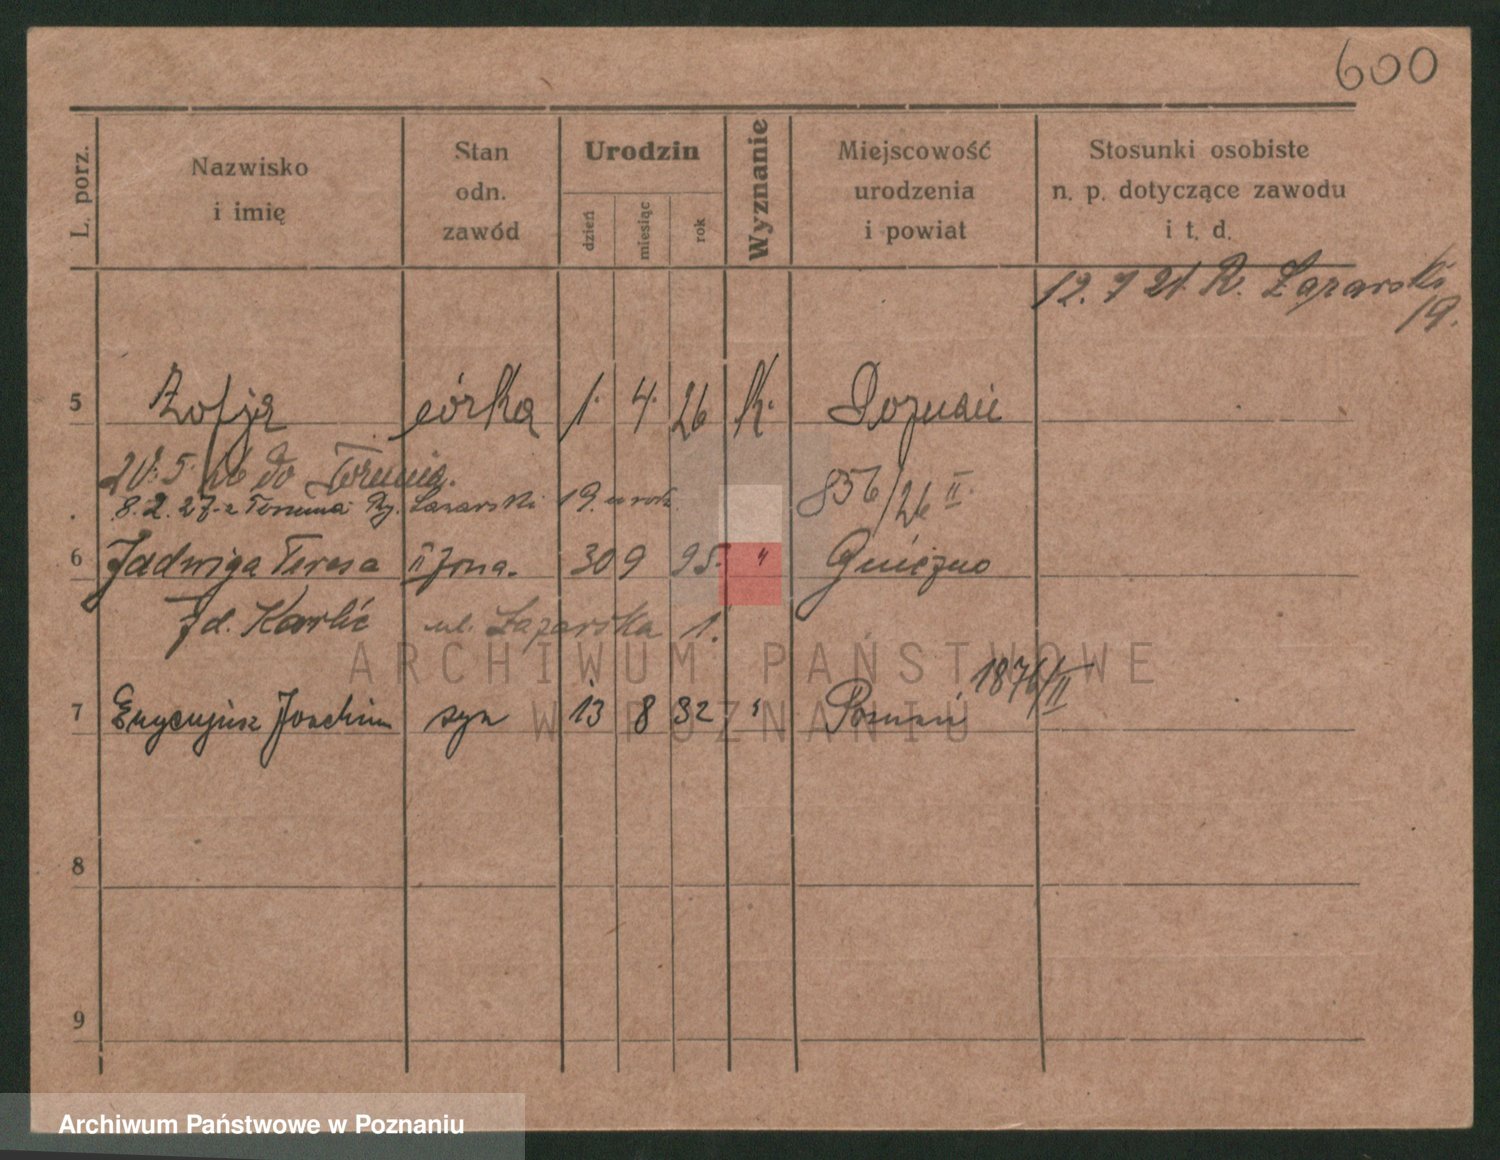 600
L. porz.
Nazwisko i imię
Stan odn. zawód
Urodzin
dzień
miesiąc
rok
Wyznanie
Miejscowość urodzenia i powiat
Stosunki osobiste n. p. dotyczące zawodu i t. d.
12. 7 21. R. Łazarski 19.
5 Zofja córka 1. 4. 26 K. Poznań
20. 5. 26 do Torunia.
8. 2. 27 z Torunia Ry. Lazarski 19.
856/26 II.
6 Jadwiga Teresa II żona. 30 9 95. " Gniezno
Karlić ul. Łazarska 1.
1876/II
7 Joachim syn 13 8 32 " Poznań
8
9
ARCHIWUM PAŃSTWOWE
W POZNANIU
Archiwum Państwowe w Poznaniu